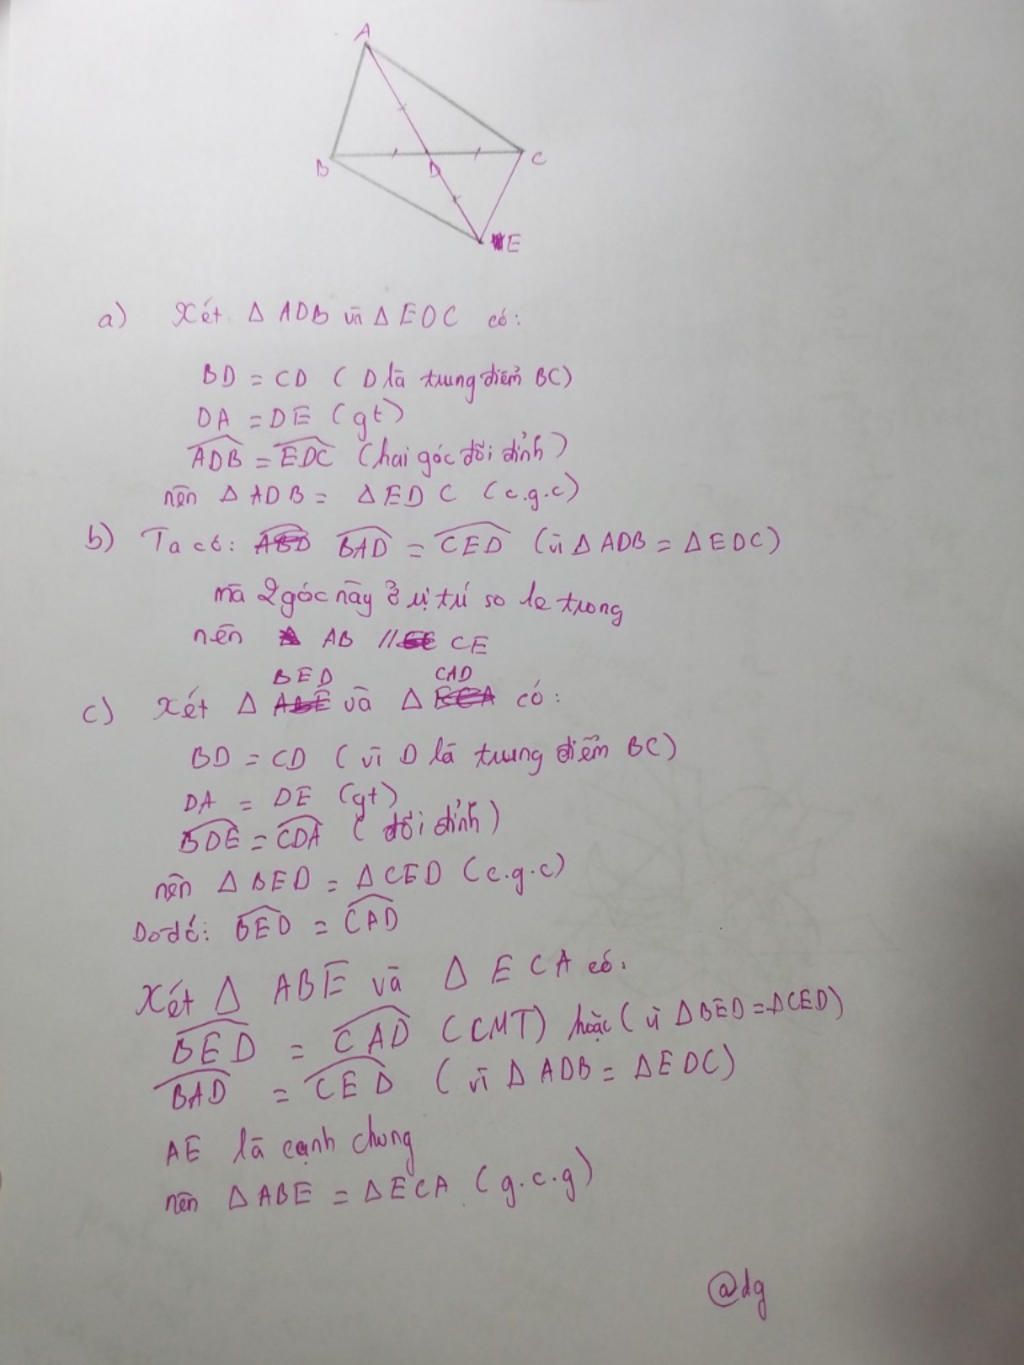 A
B
D
C
E
a) Xét Δ ADB và Δ EDC có:
BD = CD ( D là trung điểm BC)
DA = DE (gt)
ADB = EDC (hai góc đối đỉnh)
nên Δ ADB = Δ EDC (c.g.c)
b) Ta có: BAD = CED (vì Δ ADB = Δ EDC)
mà 2 góc này ở vị trí so le trong
nên AB // CE
BED CAD
c) Xét Δ ABE và Δ ECA có:
BD = CD ( vì D là trung điểm BC)
DA = DE (gt)
BDE = CDA ( đối đỉnh )
nên Δ BED = Δ CED (c.g.c)
Do đó: BED = CAD
Xét Δ ABE và Δ ECA có.
BED = CAD (CMT) hoặc ( vì Δ BED = Δ CED)
BAD = CED ( vì Δ ADB = Δ EDC)
AE là cạnh chung
nên Δ ABE = Δ ECA ( g.c.g )
@dg